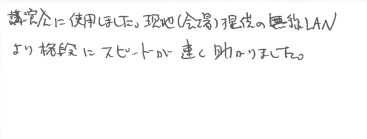 講習会に使用しました。現地(会場)提供の無線LAN
より格段にスピードが速く助かりました。